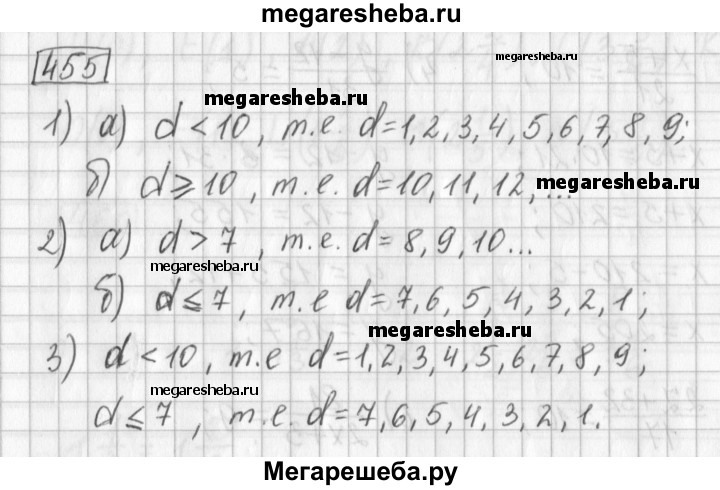 megaresheba.ru
455
megaresheba.ru
megaresheba.ru
1) а) d < 10, т.е. d = 1, 2, 3, 4, 5, 6, 7, 8, 9;
б) d ⩾ 10, т.е. d = 10, 11, 12, ...
megaresheba.ru
2) а) d > 7, т.е. d = 8, 9, 10...
megaresheba.ru
б) d ⩽ 7, т.е d = 7, 6, 5, 4, 3, 2, 1;
megaresheba.ru
3) d < 10, т.е d = 1, 2, 3, 4, 5, 6, 7, 8, 9;
megaresheba.ru
d ⩽ 7, т.е. d = 7, 6, 5, 4, 3, 2, 1.
Мегарешеба.ру